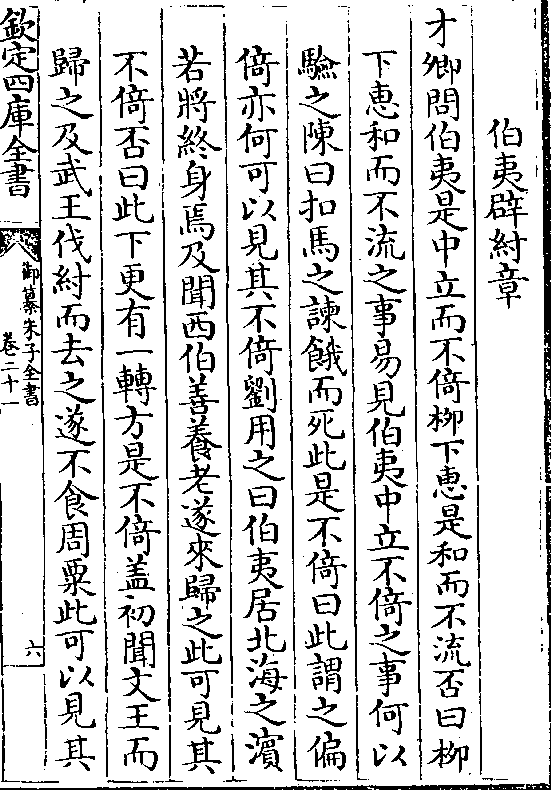 伯夷辟紂章
才卿問伯夷是中立而不倚柳下恵是和而不流否曰柳
下恵和而不流之事易見伯夷中立不倚之事何以
驗之陳曰扣馬之諫餓而死此是不倚曰此謂之偏
倚亦何可以見其不倚劉用之曰伯夷居北海之濵
若將終身焉及聞西伯善養老遂來歸之此可見其
不倚否曰此下更有一轉方是不倚盖初聞文王而
歸之及武王伐紂而去之遂不食周粟此可以見其
欽定四庫全書
御纂朱子全書
卷二十一
六